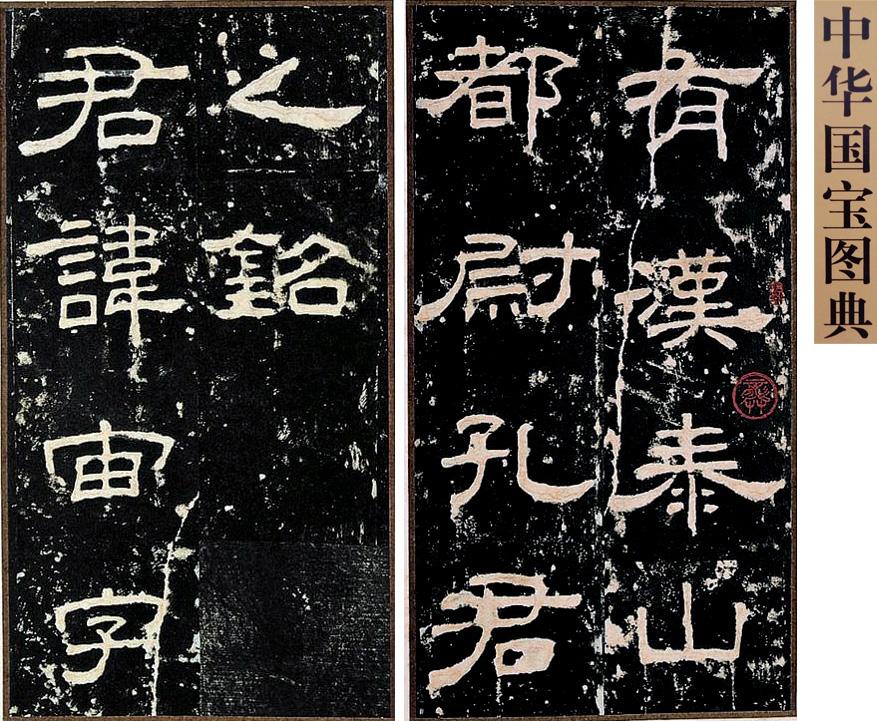 中华国宝图典
有漢泰山
都尉孔君
之銘
君諱宙字